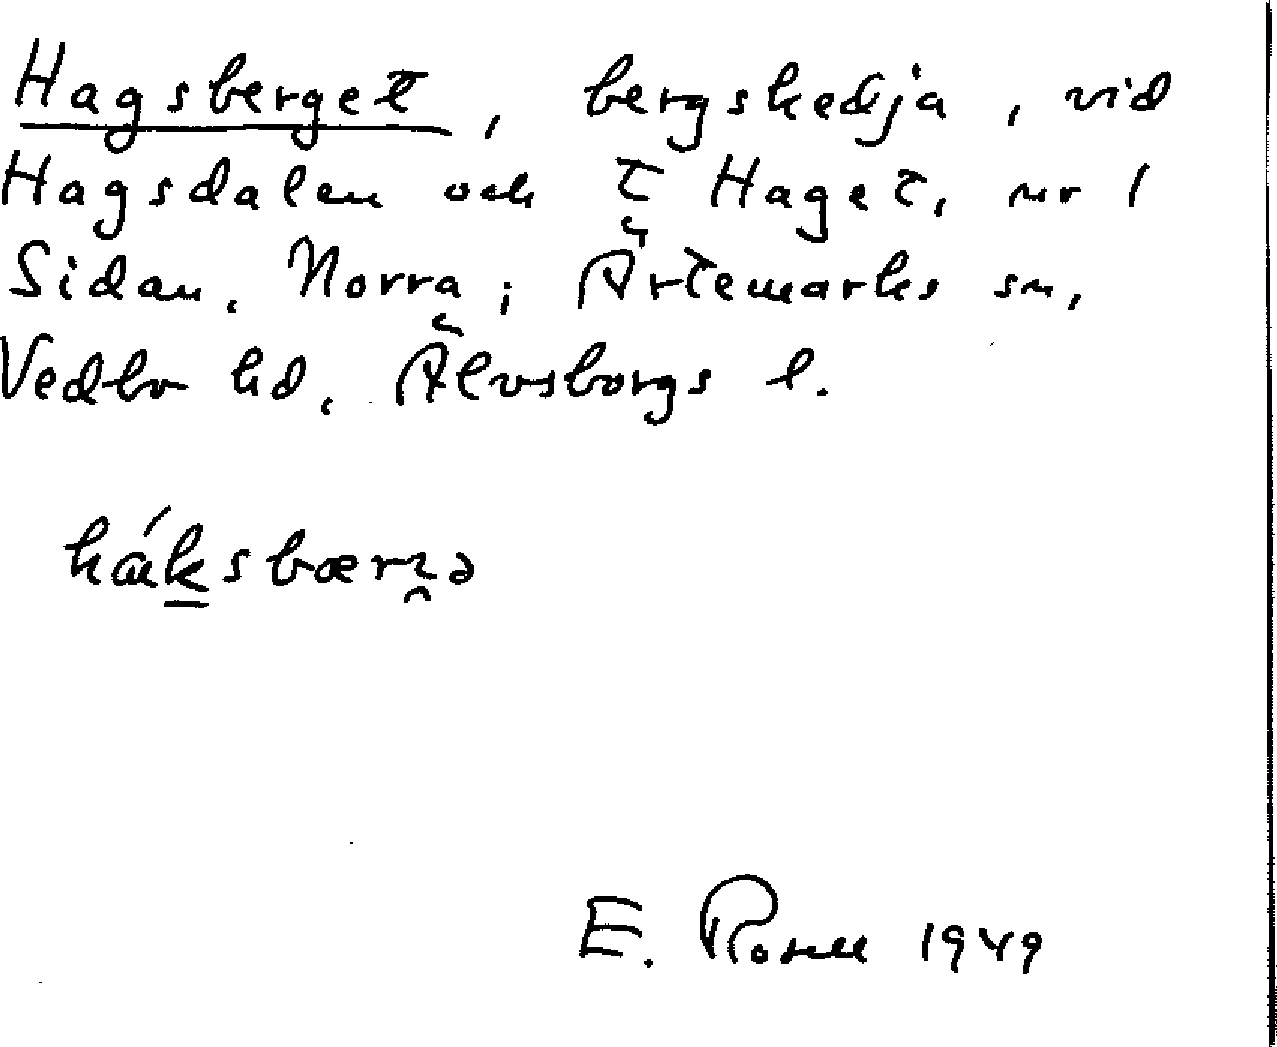 Hagsberget, bergskedja, vid
Hagsdalen och t Haget, nr 1
Sidan, Norra; Ärtemarks sn,
Vedbo hd, Älvsborgs l.
E. Rosell 1949